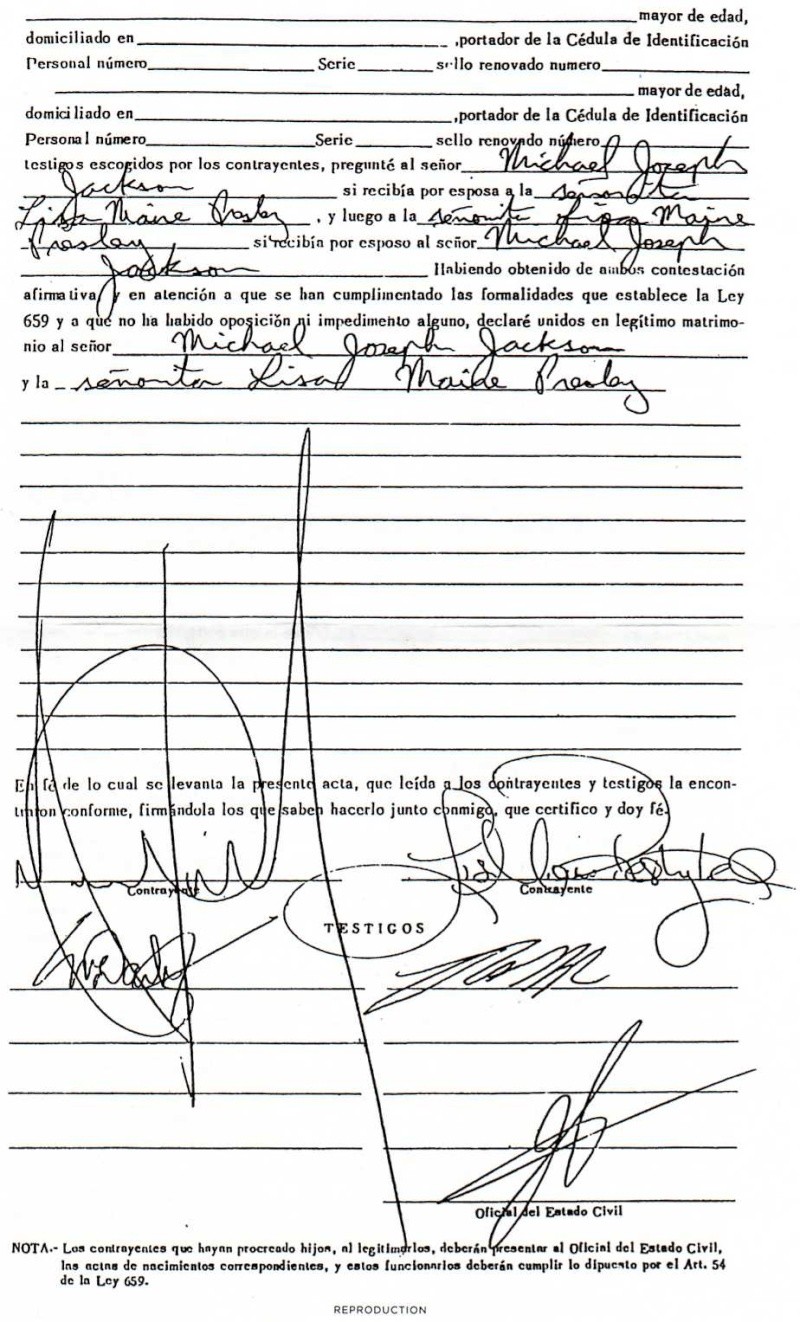 mayor de edad,
domiciliado en ,portador de la Cédula de Identificación
Personal número Serie sello renovado numero
mayor de edad,
domiciliado en ,portador de la Cédula de Identificación
Personal número Serie sello renovado número
testigos escogidos por los contrayentes, pregunté al señor Michael Joseph
Jackson si recibía por esposa a la señorita
Lisa Marie Presley , y luego a la señorita Lisa Marie
Presley si recibía por esposo al señor Michael Joseph
Jackson Habiendo obtenido de ambos contestación
afirmativa y en atención a que se han cumplimentado las formalidades que establece la Ley
659 y a que no ha habido oposición ni impedimento alguno, declaré unidos en legítimo matrimo-
nio al señor Michael Joseph Jackson
y la señorita Lisa Marie Presley
En fé de lo cual se levanta la presente acta, que leída a los contrayentes y testigos la encon-
traron conforme, firmándola los que saben hacerlo junto conmigo, que certifico y doy fé.
Contrayente Contrayente
TESTIGOS
Oficial del Estado Civil
NOTA.- Los contrayentes que hayan procreado hijos, al legitimarlos, deberán presentar al Oficial del Estado Civil,
las actas de nacimientos correspondientes, y estos funcionarios deberán cumplir lo dipuesto por el Art. 54
de la Ley 659.
REPRODUCTION